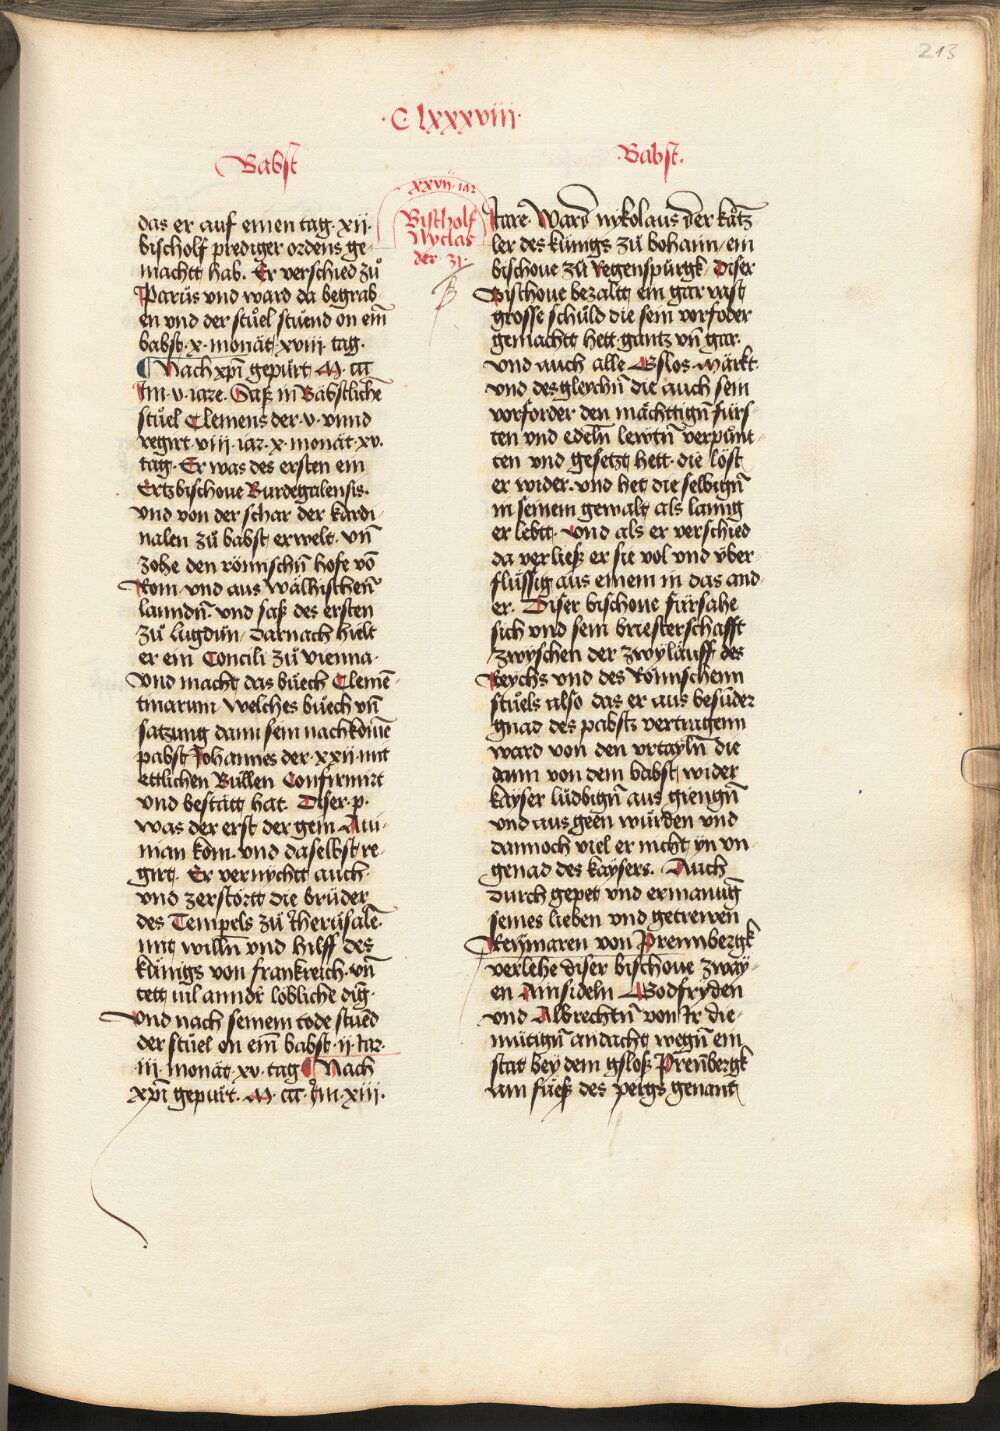 213
·C lxxxviii·
Babst
·Babst·
das er auf einen tag· xii·
bischolf prediger ordens ge-
machtt hab· Er verschied zů
Pariis vnd ward da begrab-
en vnd der stůel stůend on eīn
babst· x· monät xviii tag·
¶ Nach xpī gepürt M· ccc
Im· v· iare· Saß in Bäbstlichē
stůel Clemens der· v· vnnd
regirt viii· iar· x· monät xv·
tag· Er was des ersten ein
Ertzbischoue Burdegalensis·
vnd von der schar der kardi-
nalen zů babst erwelt· vn̄
zohe den römischn̄ hofe vō
Rom· vnd aus wälhischenn̄
lanndn̄· vnd saß des ersten
zů lugdun/ darnach hielt
er ein Concili zů vienna·
vnd macht das bůech Clemē-
tinarum/ welches bůech vn̄
satzung dann sein nachkōmē
pabst Johannes der· xxii· mit
ettlichen Bullen Confirmirt
vnd bestätt hat· Diser· p·
was der erst der gem Aui-
nian kom· vnd daselbst re-
girt· Er vernychtt auch·
vnd zerstörtt die brüder
des Tempels zů Iherusalē·
mit willn̄ vnd hilff des
künigs von franckreich· vn̄
tett vil anndr̄ löbliche dīg·
vnd nach seinem tode stůēd
der stůel on eīn babst· ii· iar·
iii· monät xv· tag ¶ Nach
xpī gepürt· M· ccc· Im· xiii·
xxvii· iar
Bischolf
Nyclas
der 31·
Iare· Ward nykolaus der kätz
ler des künigs zů bohaim/ ein
bischoue zů regenspürgk· Diser
Bischoue bezaltt ein gar vast
grosse schuld die sein vorfoder
gemachtt hett· gantz vn̄ gar·
vnd auch alle Gslos· Märkt·
vnd desgleychn̄ die auch sein
vorforder den mächttign̄ fürs-
ten vnd edeln̄ lewtn̄ verpünt-
ten vnd gesetzt hett· die löst
er wider· vnd het die selbign̄
in seinem gewalt als lanng
er lebtt· vnd als er verschied
da verließ er sie vol vnd vber-
flüssig aus einem in das and-
er· Diser bischoue fürsahe
sich vnd sein briesterschafft
zwyschen der zwyläuff des
Reychs vnd des Römischenn
stůels also das er aus besůder
gnad des pabsts vertragenn
ward von den vrtayln̄ die
dann von dem babst wider
kayser ludbign̄ aus giengn̄
vnd aus geen würden vnd
dannoch viel er nicht yn vn-
genad des kaysers· Auch
durch gepet vnd ermanūg
seines lieben vnd getrewen
Reymaren von Prennbergk
verlehe diser bischoue zway-
en Ainsideln Godfryden
vnd Albrechtn̄ von Ir die-
mütign̄ andacht wegn̄ ein
stat bey dem gsloß Prēnbergk
am fůeß des pergs genant